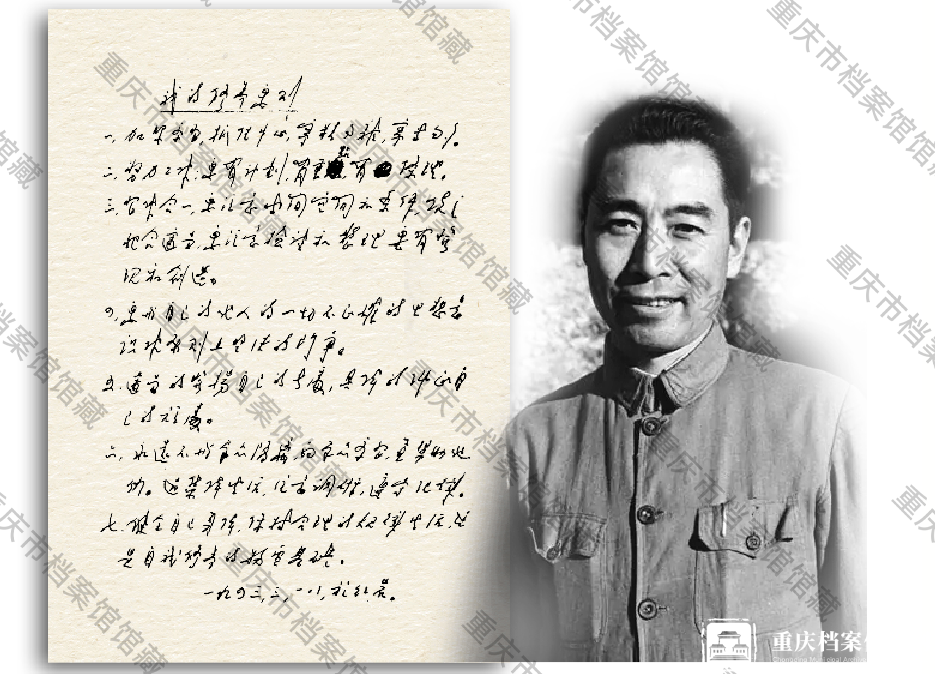 我的修养要则
一、加紧学习,抓住中心,宁精勿杂,宁专勿多。
二、努力工作,要有计划,有重点,有条理。
三、习作合一,要注意时间空间和条件,使之
配合适当,要注意检讨和整理,要有发
现和创造。
四、要与自己的他人的一切不正确的思想意
识作原则上坚决的斗争。
五、适当的发扬自己的长处,具体的纠正自
己的短处。
六、永远不与群众隔离,向群众学习,并帮助他
们。过集体生活,注意调研,遵守纪律。
七、健全自己身体,保持合理的规律生活,这
是自我修养的物质基础。
一九四三,三,一八,于红岩。
重庆市档案馆馆藏
重庆档案